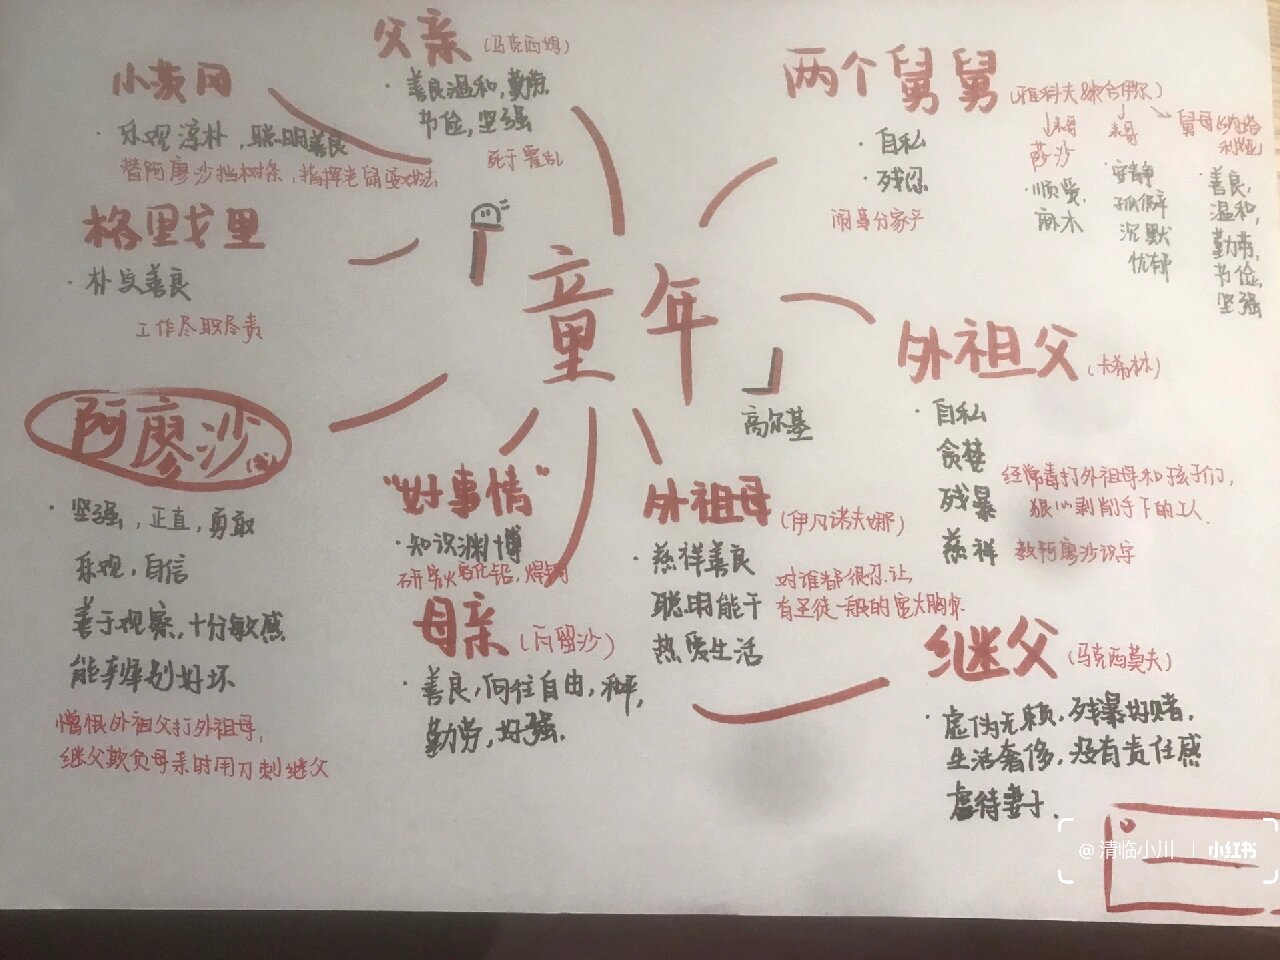 父亲(马克西姆)
·善良温和,勤劳
节俭,坚强
死于霍乱
小茨冈
·乐观淳朴,聪明善良
替阿廖沙挡树条,指挥老鼠耍戏法
格里戈里
·朴实善良
工作尽职尽责
阿廖沙
·坚强,正直,勇敢
乐观,自信
善于观察,十分敏感
能辨别好坏
憎恨外祖父打外祖母,
继父欺负母亲时用刀刺继父
「童年」
高尔基
两个舅舅
·自私
·残忍
闹着分家产
↓表哥
萨沙
·顺贤,
麻木
↓
表哥
·安静
孤僻
沉默
忧郁
舅母
·善良,
温和,
勤劳,
节俭,
坚强
外祖父(卡希林)
·自私
贪婪
残暴
慈祥
经常毒打外祖母和孩子们,
狠心剥削手下的工人.
教阿廖沙识字
"好事情"
·知识渊博
外祖母(伊凡诺夫娜)
·慈祥善良
聪明能干
热爱生活
对谁都很忍让,
有圣徒一般的宽大胸怀
母亲
·善良,向往自由,和平,
勤劳,好强.
继父(马克西莫夫)
·虚伪无赖,残暴好赌,
生活奢侈,没有责任感
虐待妻子.
@清临小川 | 小红书